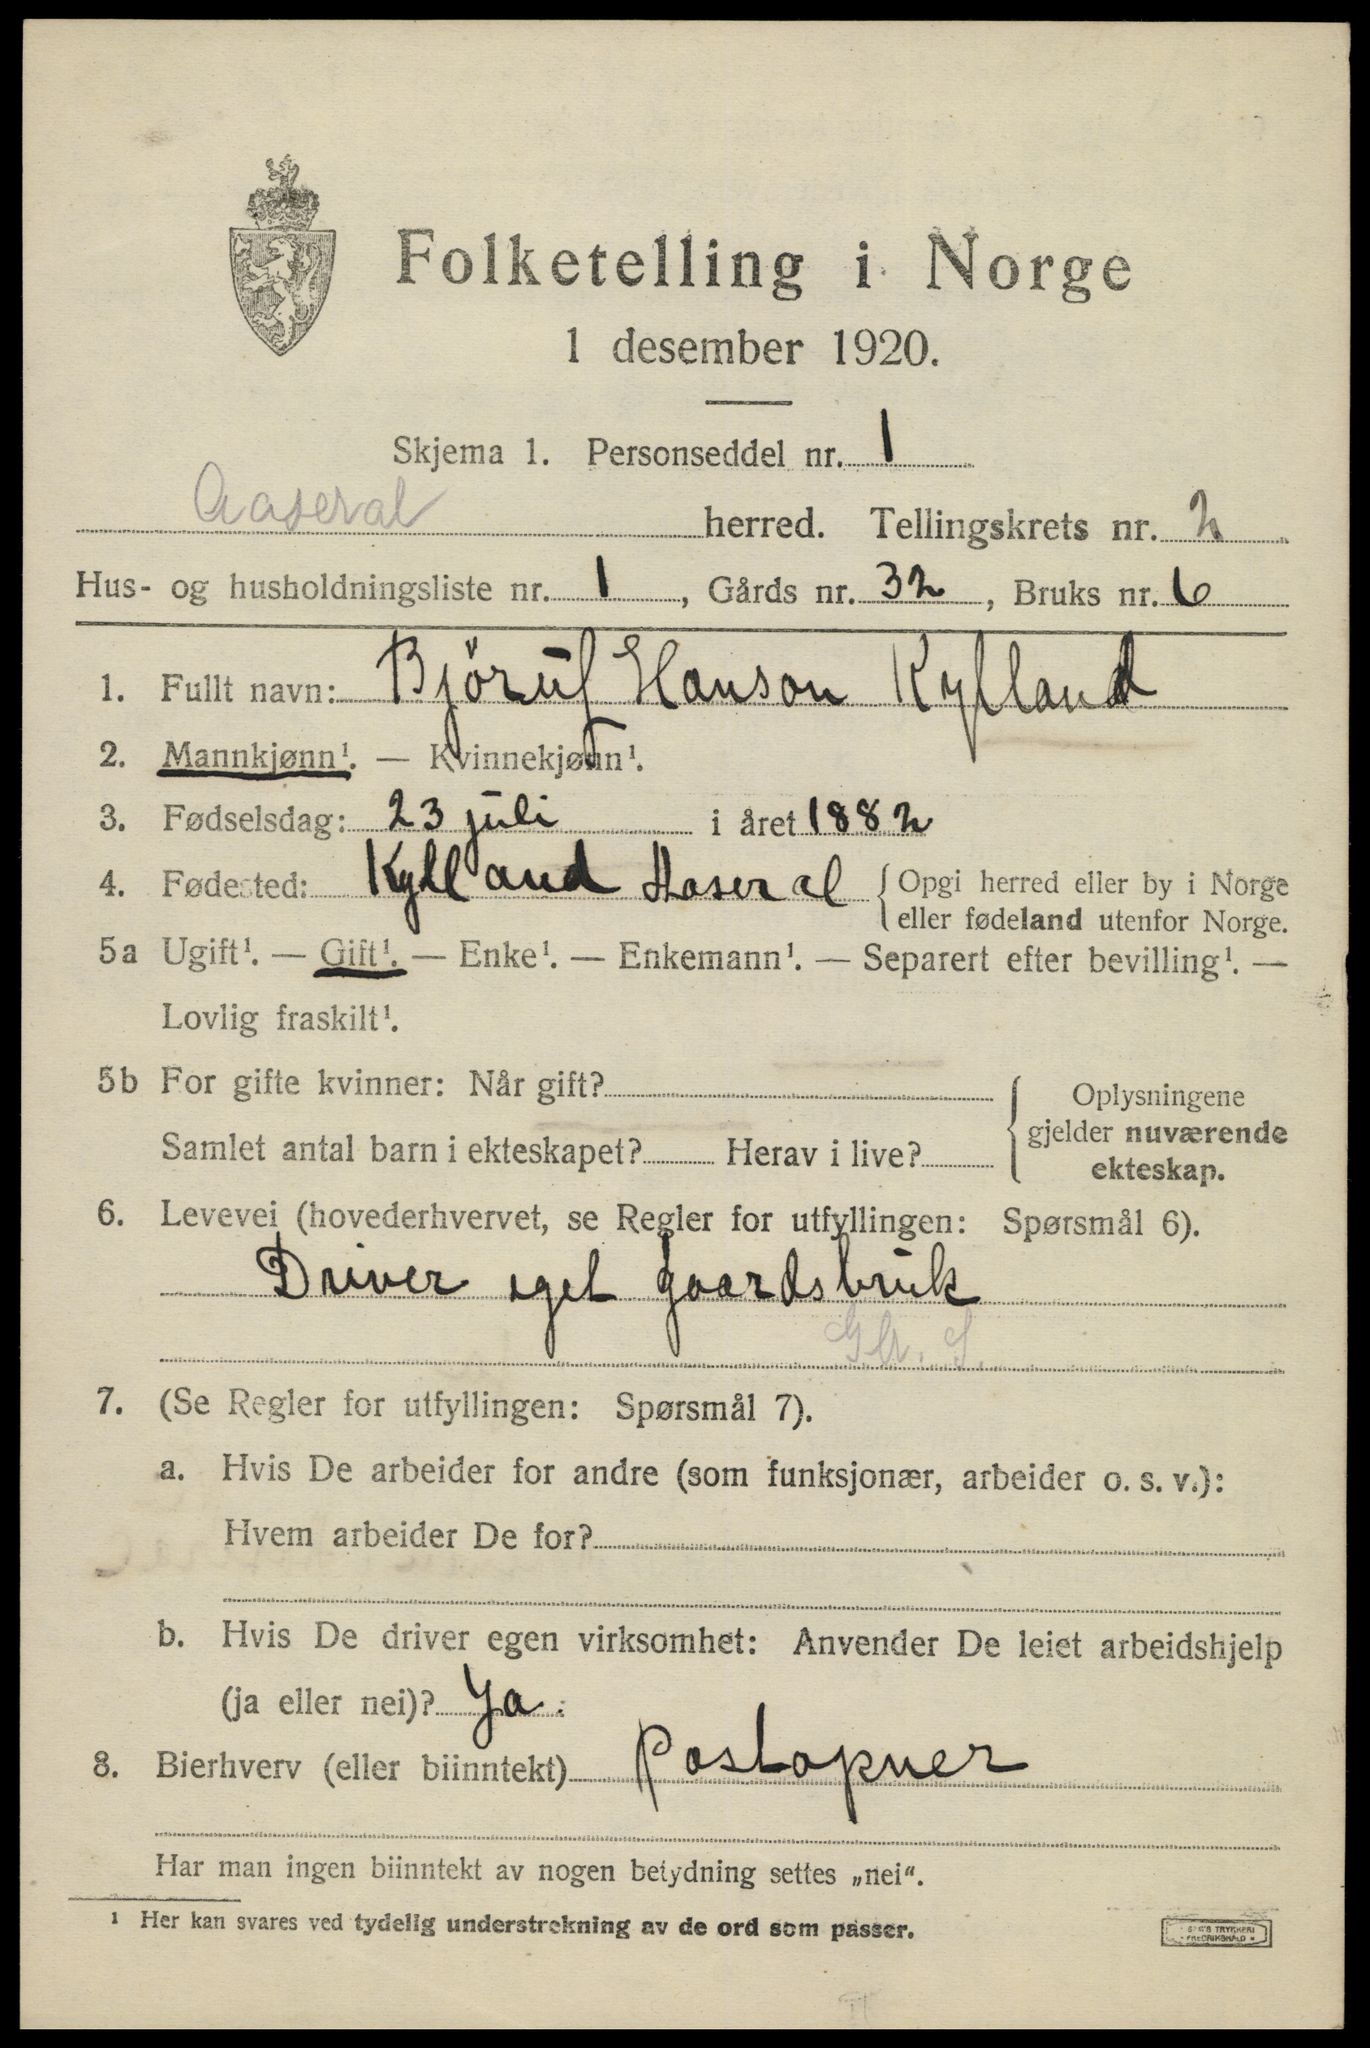 Folketelling i Norge
1 desember 1920.
Skjema 1. Personseddel nr. 1
Aaseral herred. Tellingskrets nr. 2
Hus- og husholdningsliste nr. 1, Gårds nr. 32, Bruks nr. 6
1. Fullt navn: Björuf Hanson Kylland
2. Mannkjønn¹. — Kvinnekjønn¹.
3. Fødselsdag: 23 juli i året 1882
4. Fødested: Kylland Aaseral { Opgi herred eller by i Norge
eller fødeland utenfor Norge.
5a Ugift¹. — Gift¹. — Enke¹. — Enkemann¹. — Separert efter bevilling¹. —
Lovlig fraskilt¹.
5b For gifte kvinner: Når gift?
Samlet antal barn i ekteskapet? Herav i live?
{ Oplysningene
gjelder nuværende
ekteskap.
6. Levevei (hovederhvervet, se Regler for utfyllingen: Spørsmål 6).
Driver eget gaardsbruk
7. (Se Regler for utfyllingen: Spørsmål 7).
a. Hvis De arbeider for andre (som funksjonær, arbeider o. s. v.):
Hvem arbeider De for?
b. Hvis De driver egen virksomhet: Anvender De leiet arbeidshjelp
(ja eller nei)? Ja.
8. Bierhverv (eller biinntekt) Postopner
Har man ingen biinntekt av nogen betydning settes „nei“.
¹ Her kan svares ved tydelig understrekning av de ord som passer.
TRYKKERI
FREDRIKSHALD